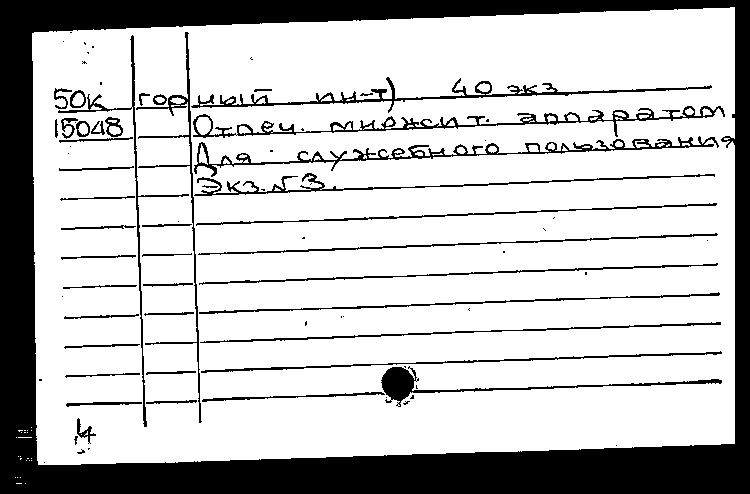 50к горный ин-т) 40 экз
15048 Отпеч. множит. аппаратом.
Для служебного пользования
Экз. № 3.
4